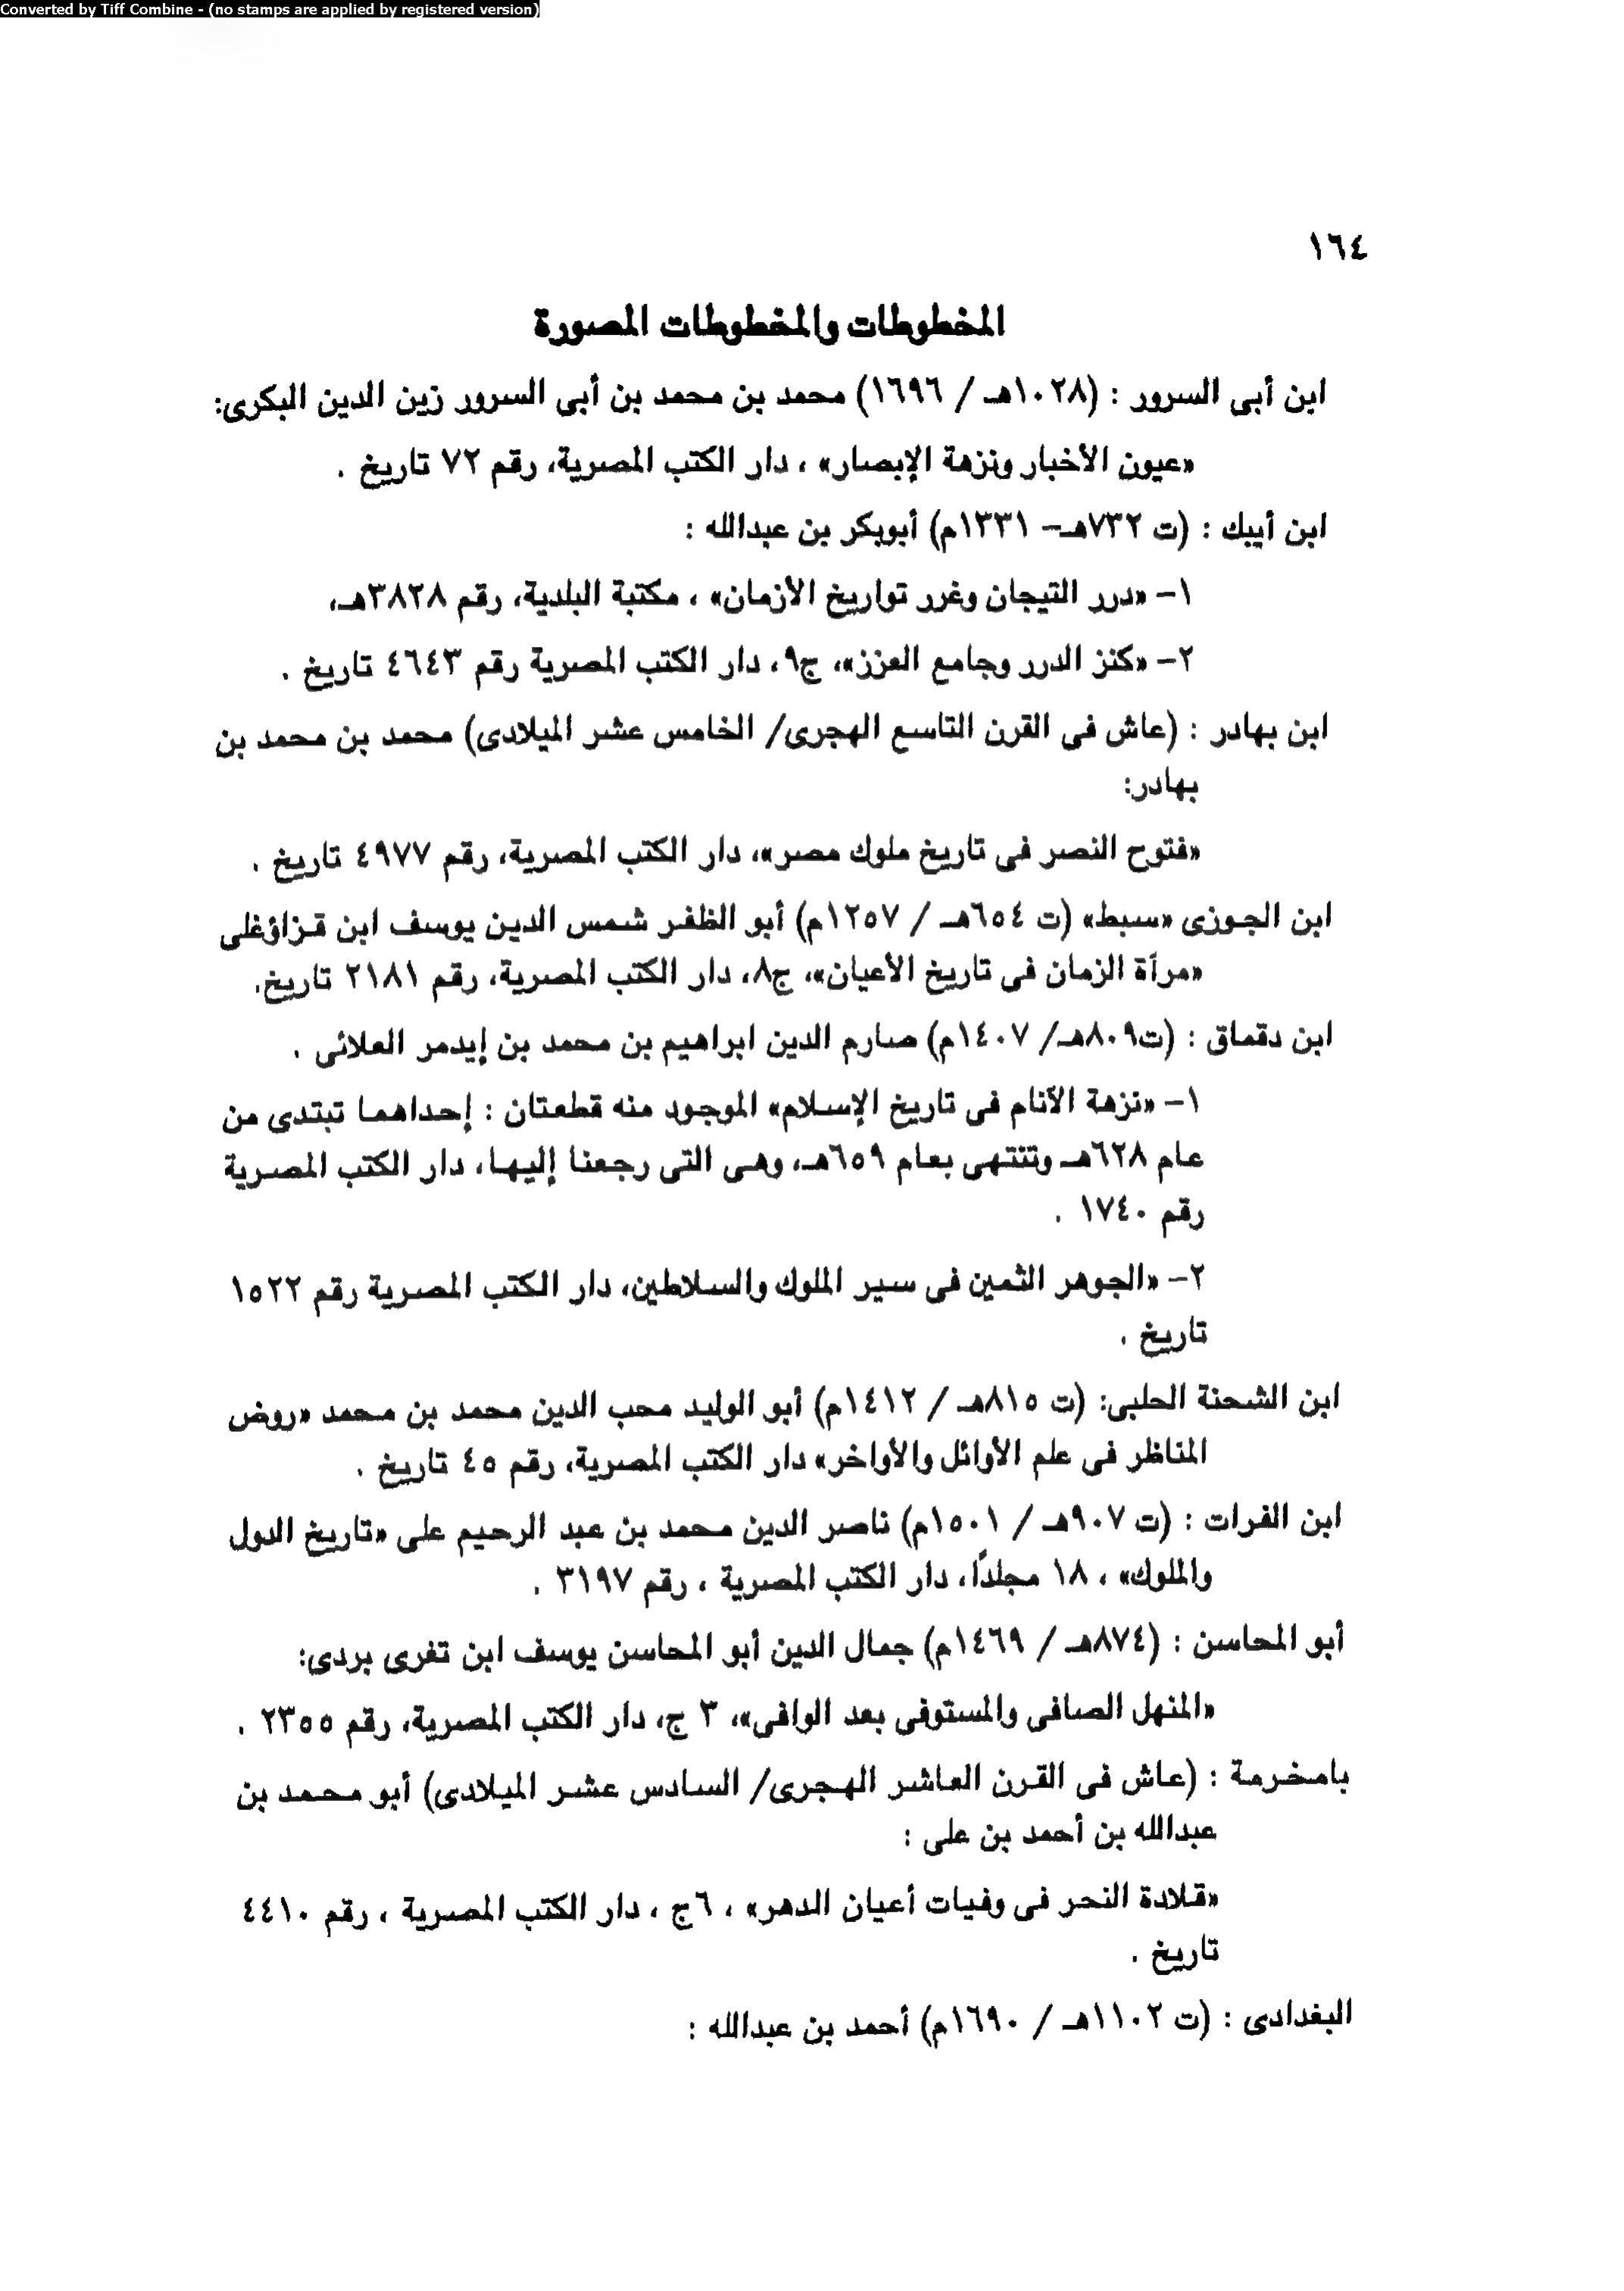 Converted by Tiff Combine - (no stamps are applied by registered version)
١٦٤
المخطوطات والمخطوطات المصورة
ابن أبى السرور : (١٠٢٨هـ / ١٦٩٦) محمد بن محمد بن أبى السرور زين الدين البكرى:
«عيون الأخبار ونزهة الإبصار» ، دار الكتب المصرية، رقم ٧٢ تاريخ .
ابن أيبك : (ت ٧٣٢هـ– ١٣٣١م) أبوبكر بن عبدالله :
١– «درر التيجان وغرر تواريخ الأزمان» ، مكتبة البلدية، رقم ٣٨٢٨هـ،
٢– «كنز الدرر وجامع العزز»، ج٩، دار الكتب المصرية رقم ٤٦٤٣ تاريخ .
ابن بهادر : (عاش فى القرن التاسع الهجرى/ الخامس عشر الميلادى) محمد بن محمد بن
بهادر:
«فتوح النصر فى تاريخ ملوك مصر»، دار الكتب المصرية، رقم ٤٩٧٧ تاريخ .
ابن الجوزى «سبط» (ت ٦٥٤هـ / ١٢٥٧م) أبو الظفر شمس الدين يوسف ابن قزاؤغلى
«مرآة الزمان فى تاريخ الأعيان»، ج٨، دار الكتب المصرية، رقم ٢١٨١ تاريخ.
ابن دقماق : (ت٨٠٩هـ/ ١٤٠٧م) صارم الدين ابراهيم بن محمد بن إيدمر العلائى .
١– «نزهة الآنام فى تاريخ الإسلام» الموجود منه قطعتان : إحداهما تبتدى من
عام ٦٢٨هـ وتنتهى بعام ٦٥٩هـ، وهى التى رجعنا إليها، دار الكتب المصرية
رقم ١٧٤٠ .
٢– «الجوهر الثمين فى سير الملوك والسلاطين، دار الكتب المصرية رقم ١٥٢٢
تاريخ .
ابن الشحنة الحلبى: (ت ٨١٥هـ / ١٤١٢م) أبو الوليد محب الدين محمد بن محمد «روض
المناظر فى علم الأوائل والأواخر» دار الكتب المصرية، رقم ٤٥ تاريخ .
ابن الفرات : (ت ٩٠٧هـ / ١٥٠١م) ناصر الدين محمد بن عبد الرحيم على «تاريخ الدول
والملوك» ، ١٨ مجلدًا، دار الكتب المصرية ، رقم ٣١٩٧ .
أبو المحاسن : (٨٧٤هـ / ١٤٦٩م) جمال الدين أبو المحاسن يوسف ابن تغرى بردى:
«المنهل الصافى والمستوفى بعد الوافى»، ٣ ج، دار الكتب المصرية، رقم ٢٣٥٥ .
بامخرمة : (عاش فى القرن العاشر الهجرى/ السادس عشر الميلادى) أبو محمد بن
عبدالله بن أحمد بن على :
«قلادة النحر فى وفيات أعيان الدهر» ، ٦ج ، دار الكتب المصرية ، رقم ٤٤١٠
تاريخ .
البغدادى : (ت ١١٠٢هـ / ١٦٩٠م) أحمد بن عبدالله :